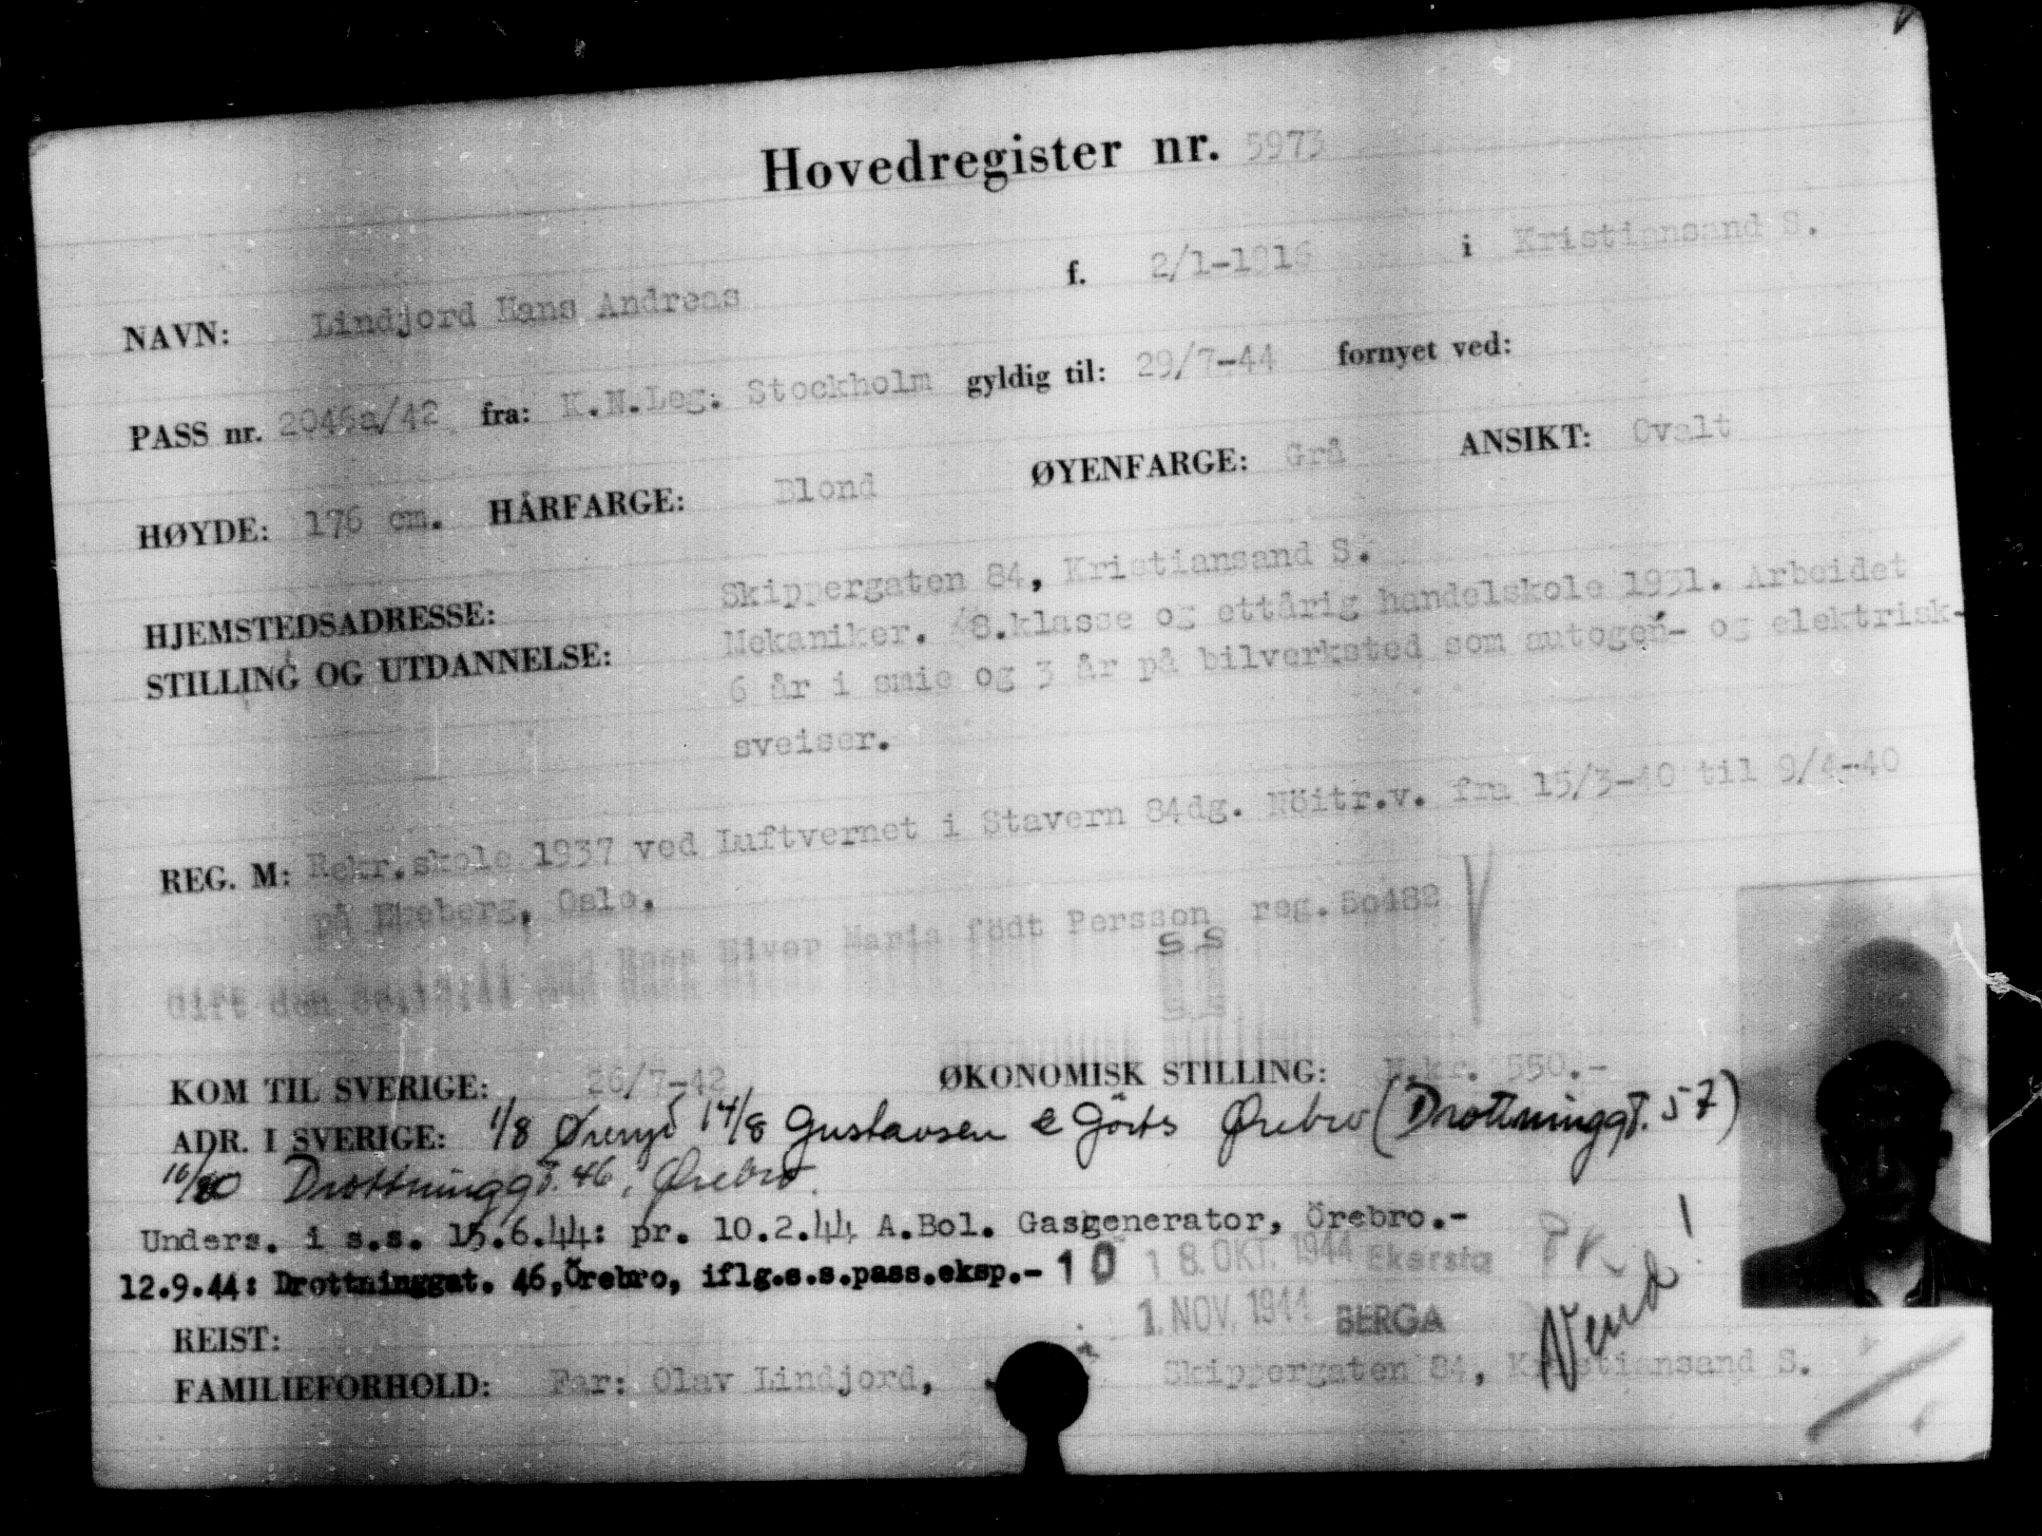 Hovedregister nr. 5973
NAVN: Lindjord Hans Andreas f. 2/1-1916 i Kristiansand S.
PASS nr. 2046a/42 fra: K.N.Leg. Stockholm gyldig til: 29/7-44 fornyet ved:
HØYDE: 176 cm. HÅRFARGE: Blond ØYENFARGE: Grå ANSIKT: Ovalt
HJEMSTEDSADRESSE: Skippergaten 84, Kristiansand S.
STILLING OG UTDANNELSE: Mekaniker. 8.klasse og ettårig handelskole 1931. Arbeidet
6 år i smie og 3 år på bilverksted som autogen- og elektrisk-
sveiser.
REG. M: Rekr.skole 1937 ved Luftvernet i Stavern 84dg. Nöitr.v. fra 15/3-40 til 9/4-40
på Ekeberg, Oslo.
Gift den ved Maria födt Persson reg.
S.S
S.S
KOM TIL SVERIGE: 26/7-42 ØKONOMISK STILLING: N.kr. 550.-
ADR. I SVERIGE: 1/8 Øreryd 14/8 Gustavsen Ørebro (Drottninggt. 57)
16/10 Drottninggt. 46, Ørebro.
Unders. i s.s. 15.6.44: pr. 10.2.44 A.Bol. Gasgenerator, Örebro.-
12.9.44: Drottninggat. 46, Örebro, iflg.s.s.pass.eksp.- 10 18. OKT. 1944 Ekersta PK
1. NOV. 1944 BERGA Vend!
REIST:
FAMILIEFORHOLD: Far: Olav Lindjord, Skippergaten 84, Kristiansand S.